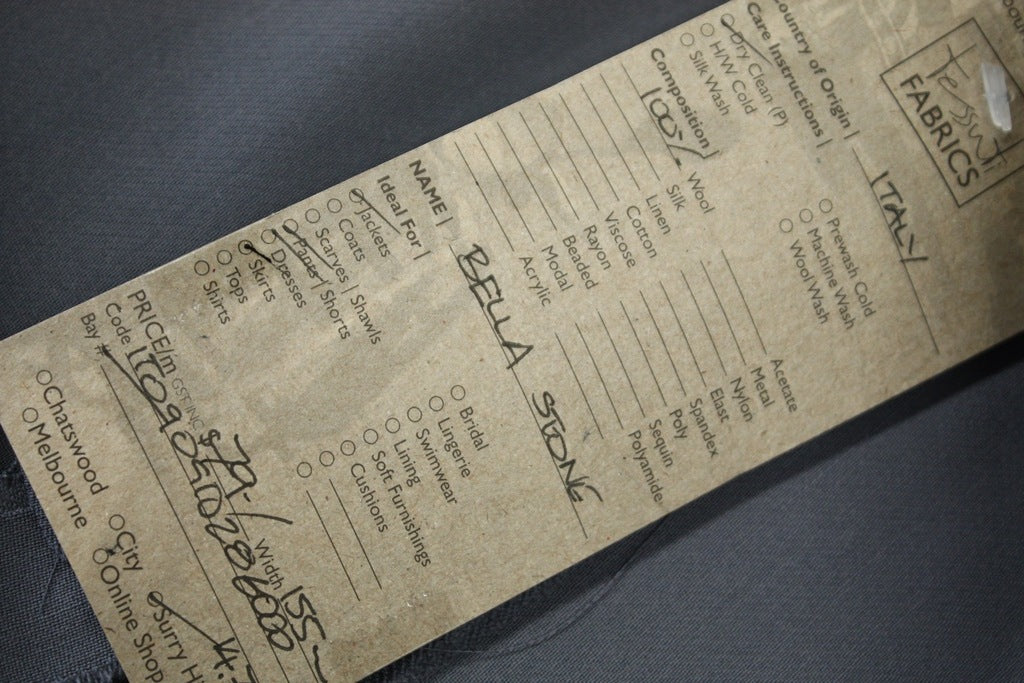 tessuti
FABRICS
Country of Origin | ITALY
Care Instructions |
Dry Clean (P) Prewash Cold
H/W Cold Machine Wash
Silk Wash Wool Wash
Composition |
100% Wool Acetate
Silk Metal
Linen Nylon
Cotton Elast
Viscose Spandex
Rayon Poly
Beaded Sequin
Modal Polyamide
Acrylic
NAME | BELLA STONE
Ideal For |
Jackets Bridal
Coats Lingerie
Scarves | Shawls Swimwear
Pants | Shorts Lining
Dresses Soft Furnishings
Skirts Cushions
Tops
Shirts
PRICE/m GST INC $79./ Width 155
Code
Bay #
Chatswood City Surry H
Melbourne Online Shop